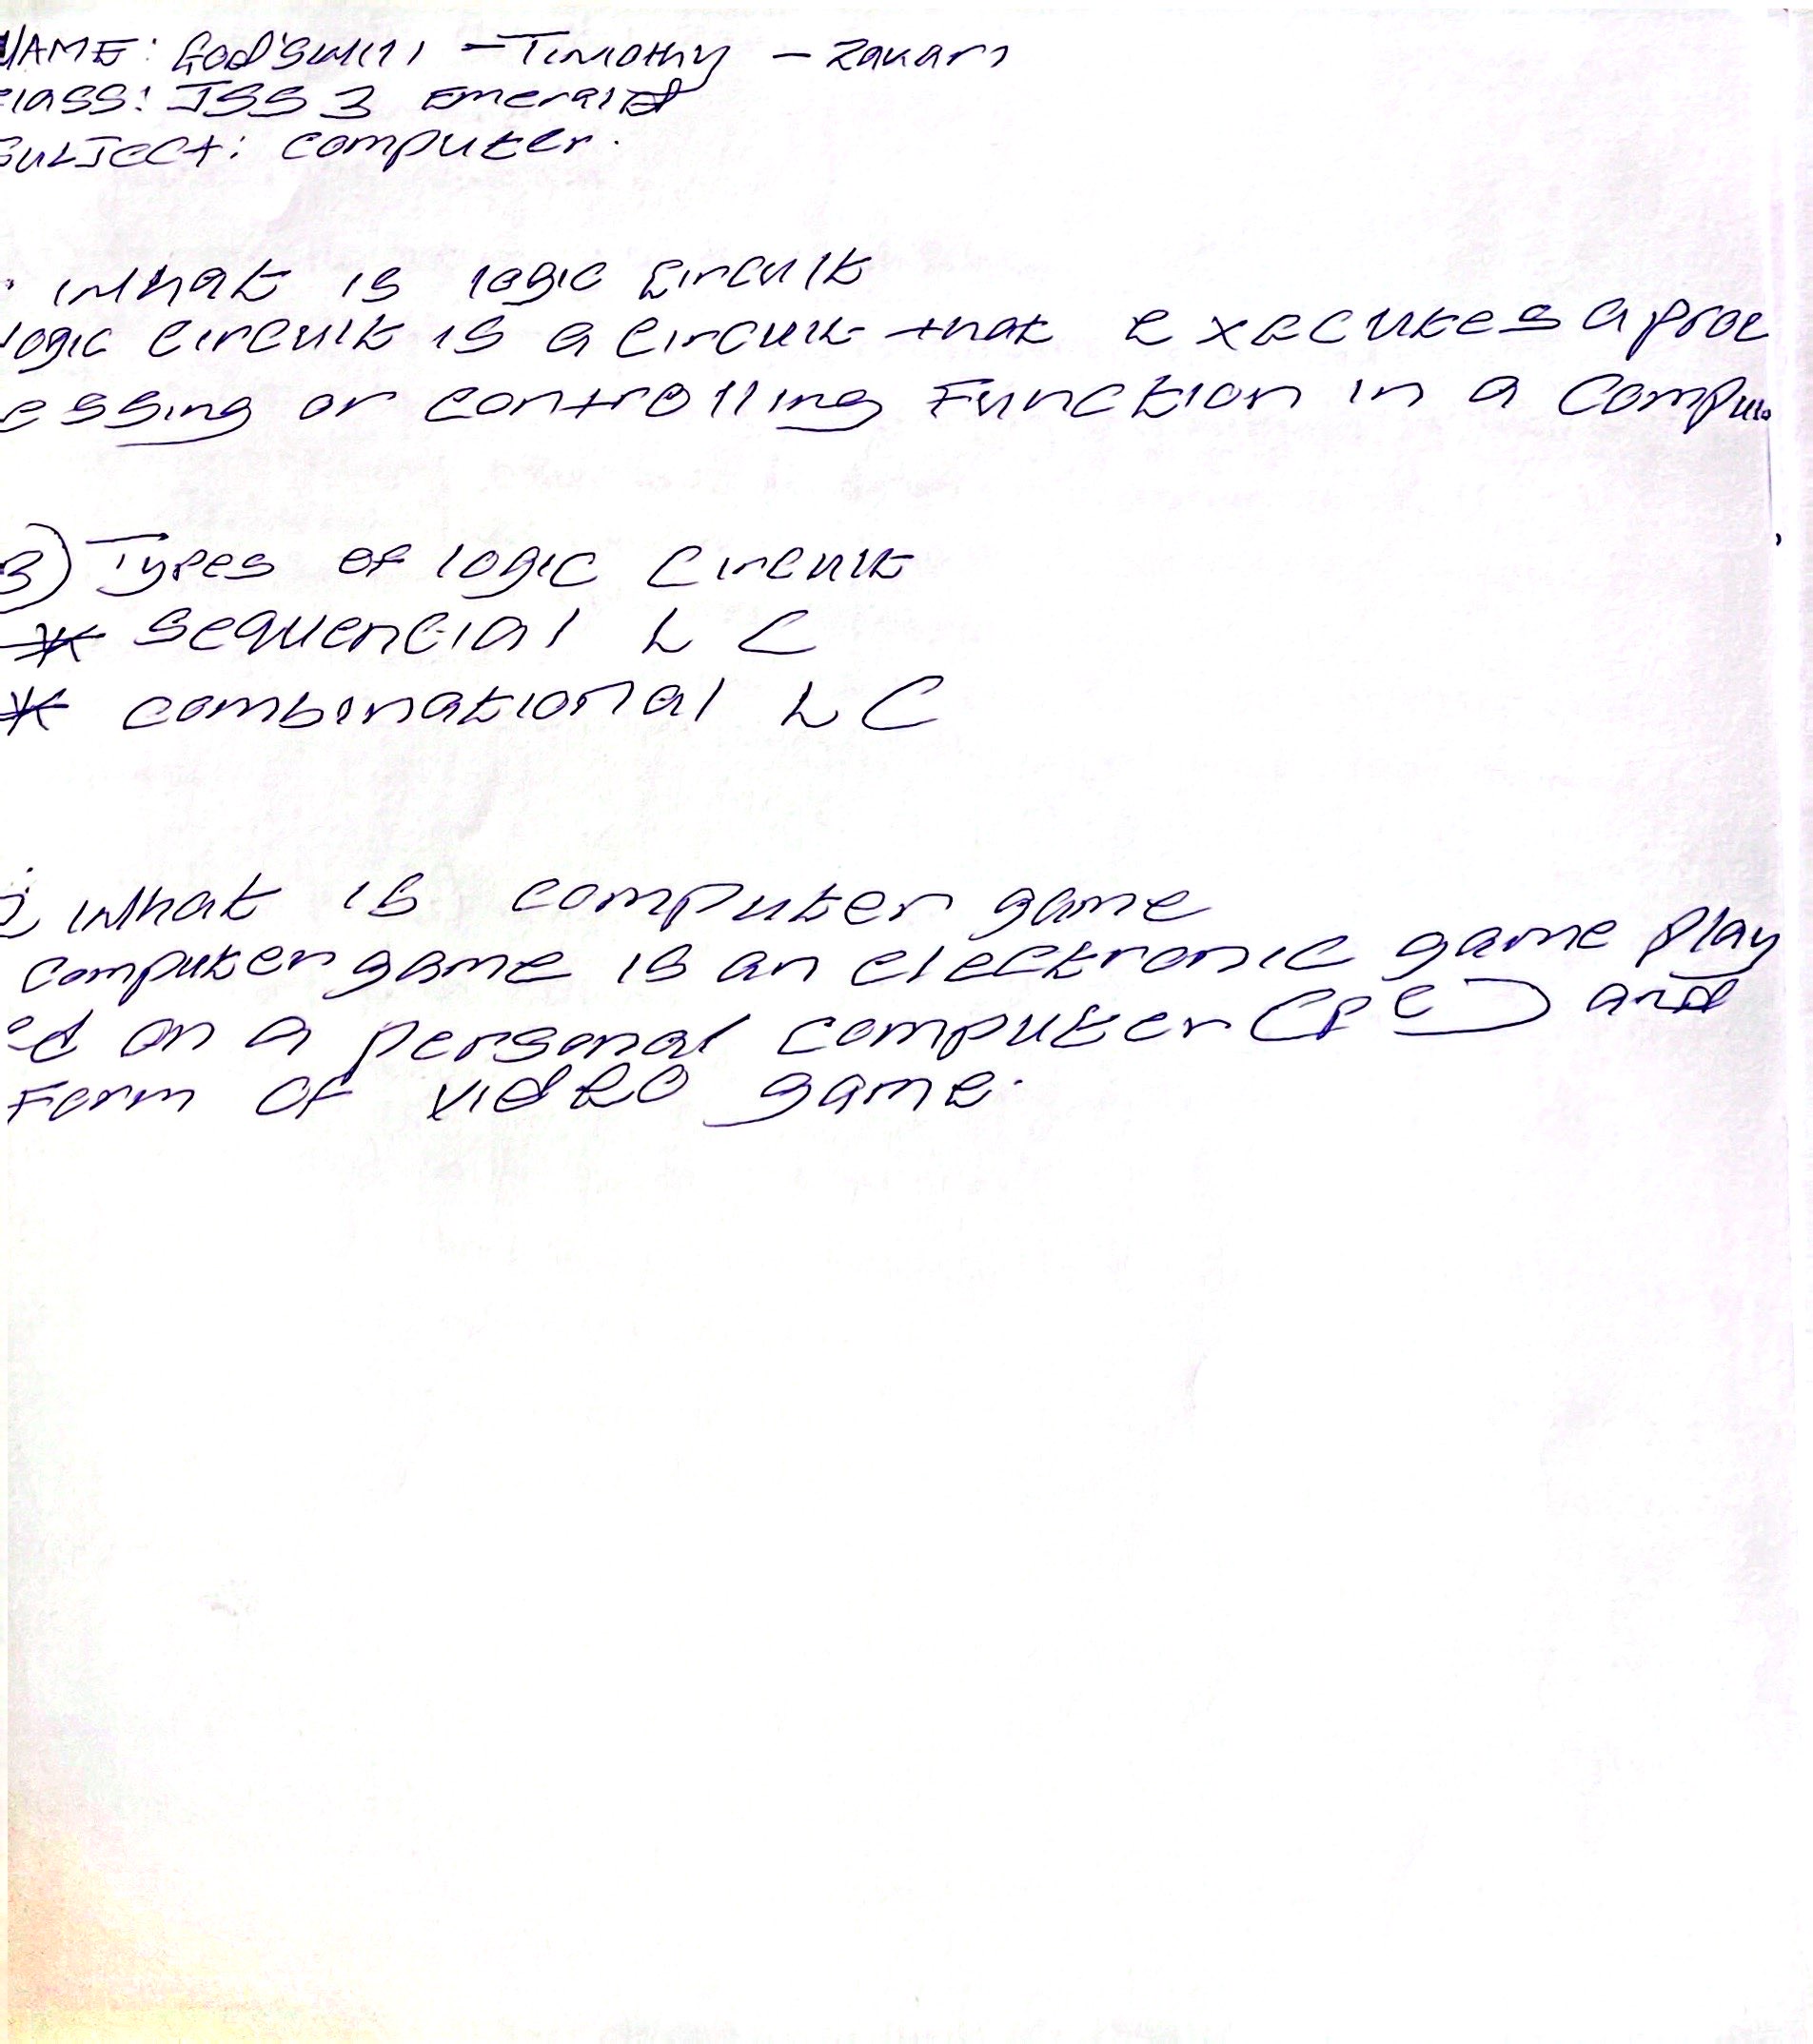 NAME: God'swill - Timothy - Zakari
class: JSS 3 Emerald
Subject: computer.
What is logic circuit
logic circuit is a circuit that executes a proc
essing or controlling Function in a Compu
B) Types of logic circuit
* sequencial L C
* combinational L C
2 What is computer game
computer game is an electronic game play
ed on a personal computer (PC) and
Form of video game.